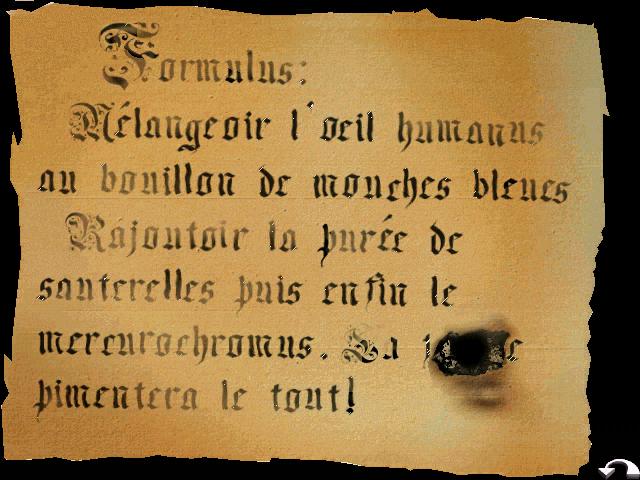 Formulus:
Mélangeoir l'oeil humanus
au bouillon de mouches bleues
Rajoutoir la purée de
santerelles puis enfin le
mercurochromus. La
pimentera le tout!